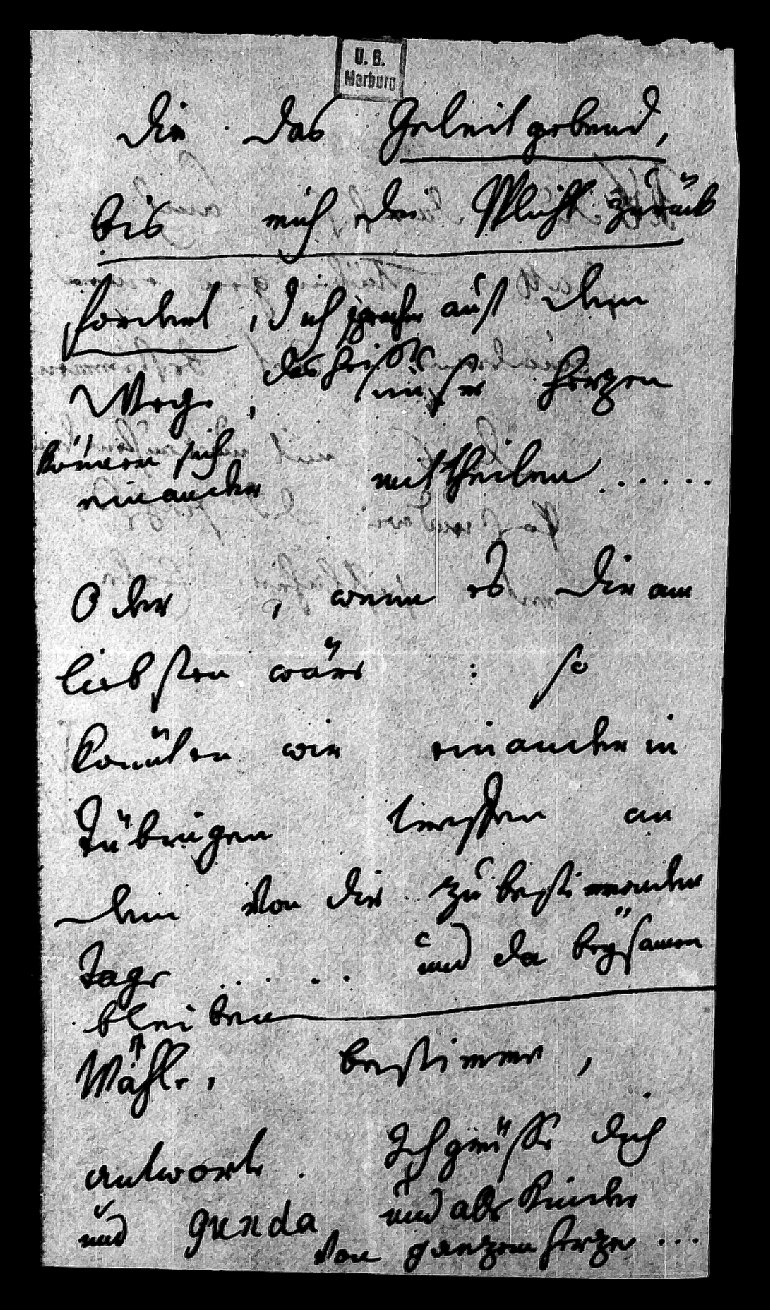 U. B.
Marburg
dir das Geleit gebend,
bis mich die Pflicht zurück
fordert, doch auf dem
Wege, das heißt unsre Herzen
können sich
einander mittheilen......
Oder, wenn es dir am
liebsten wäre: so
könnten wir einander in
Tübingen treffen an
dem von dir zu bestimmenden
Tage ...... und da beysamen
bleiben
Wähle, bestimme,
antworte. Ich grüße dich
und gunda und alle Kinder
von ganzem Herzen...